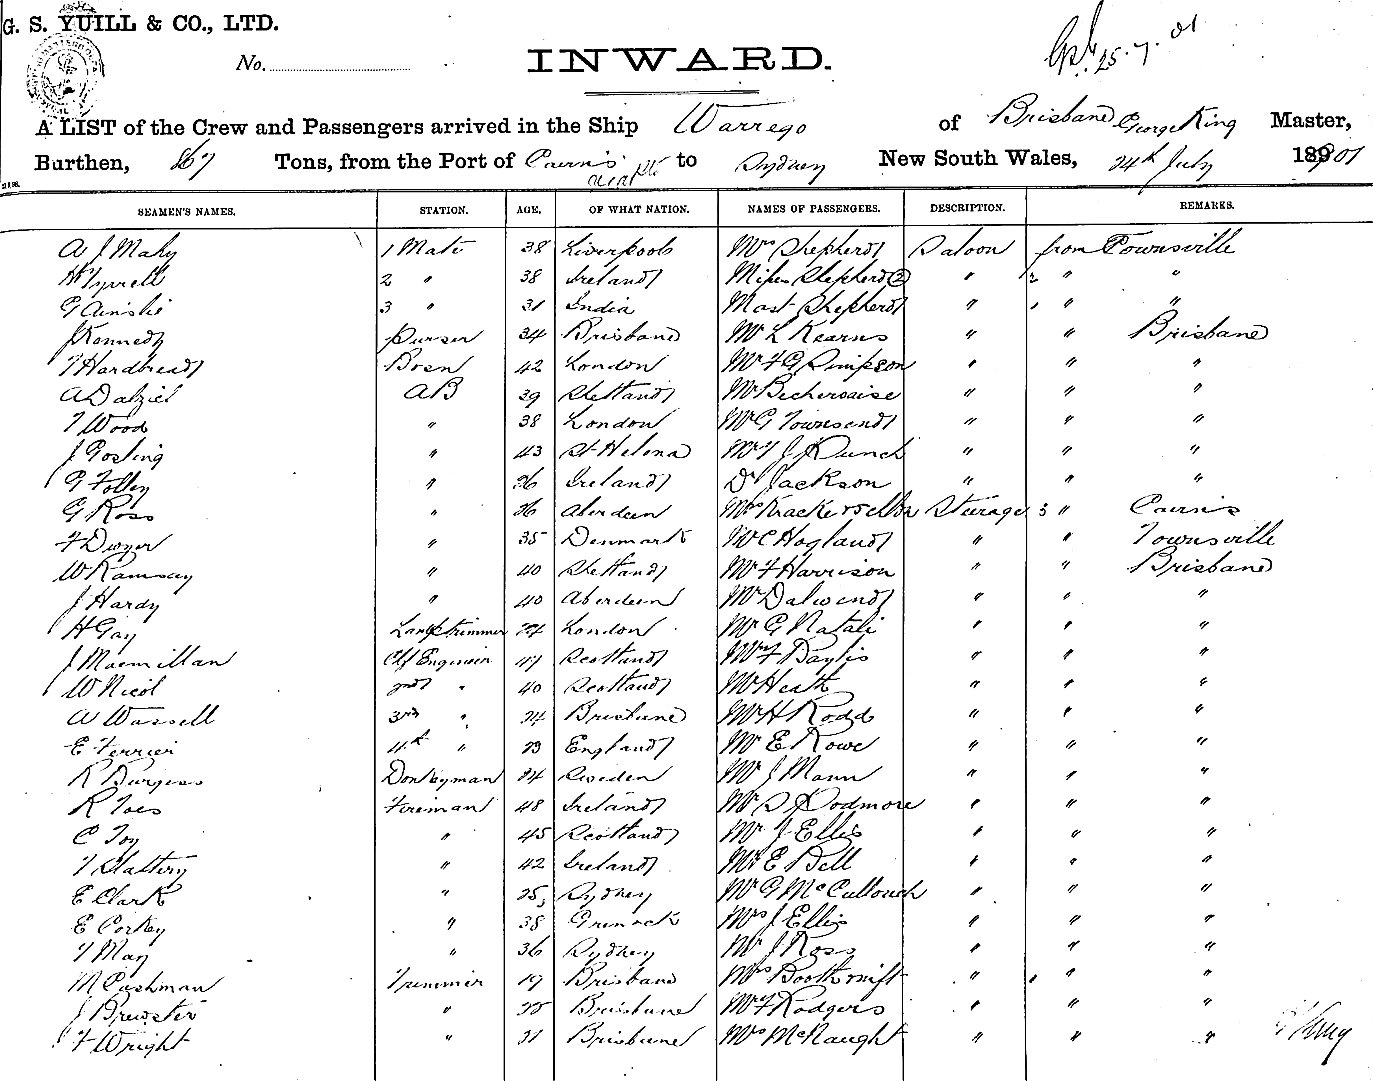 G. S. YUILL & CO., LTD.
No.
INWARD.
25.7.01
A LIST of the Crew and Passengers arrived in the Ship Warrego of Brisbane George King Master,
Burthen, 867 Tons, from the Port of Cairns to Sydney New South Wales, 24th July 1901
SEAMEN'S NAMES. STATION. AGE. OF WHAT NATION. NAMES OF PASSENGERS. DESCRIPTION. REMARKS.
A J Maky 1 Mate 38 Liverpool Mrs Shepherd Saloon from Townsville
H Tyrrell 2 " 38 Ireland Misses Shepherd 2 " 2 " "
G Ainslie 3 " 31 India Mast Shepherd " " "
J Kennedy Purser 34 Brisbane Mr L Kearns " " Brisbane
T Hardbread Bosn 42 London Mr F G Simpson " " "
A Dalziel AB 39 Shetland Mr Bechervaise " " "
T Wood " 38 London Mr G Townsend " " "
J Gosling " 43 St Helena Mr J Punch " " "
G Folley " 26 Ireland Dr Jackson " " "
G Ross " 26 Aberdeen Steerage 3 " Cairns
F Dwyer " 35 Denmark Mr C Hogland " " Townsville
W Ramsay " 40 Shetland Mr F Harrison " " Brisbane
J Hardy " 40 Aberdeen Mr Dalwend " " "
H Gay Lamptrimmer 24 London Mr G Natali " " "
J Macmillan Chf Engineer 47 Scotland Mr F Baylis " " "
W Nicol 2nd " 40 Scotland Mr Heath " " "
A Wassell 3rd " 24 Brisbane Mr H Rodd " " "
E Ferrier 4th " 23 England Mr E Rowe " " "
R Burgess Donkeyman 24 Sweden Mr J Mann " " "
R Toes Fireman 48 Ireland Mr S Podmore " " "
C Toy " 45 Scotland Mr J Ellis " " "
T Slattery " 42 Ireland Mr E Bell " " "
E Clark " 25 Sydney Mr G McCullouch " " "
E Corkey " 38 Mrs J Ellis " " "
T May " 36 Sydney Mr J Ross " " "
M Cashman Trimmer 19 Brisbane Mrs Boothswift " " "
J Brewster " 22 Brisbane Mr F Rodgers " " "
F Wright " 21 Brisbane Mrs McNaught " " "
G King